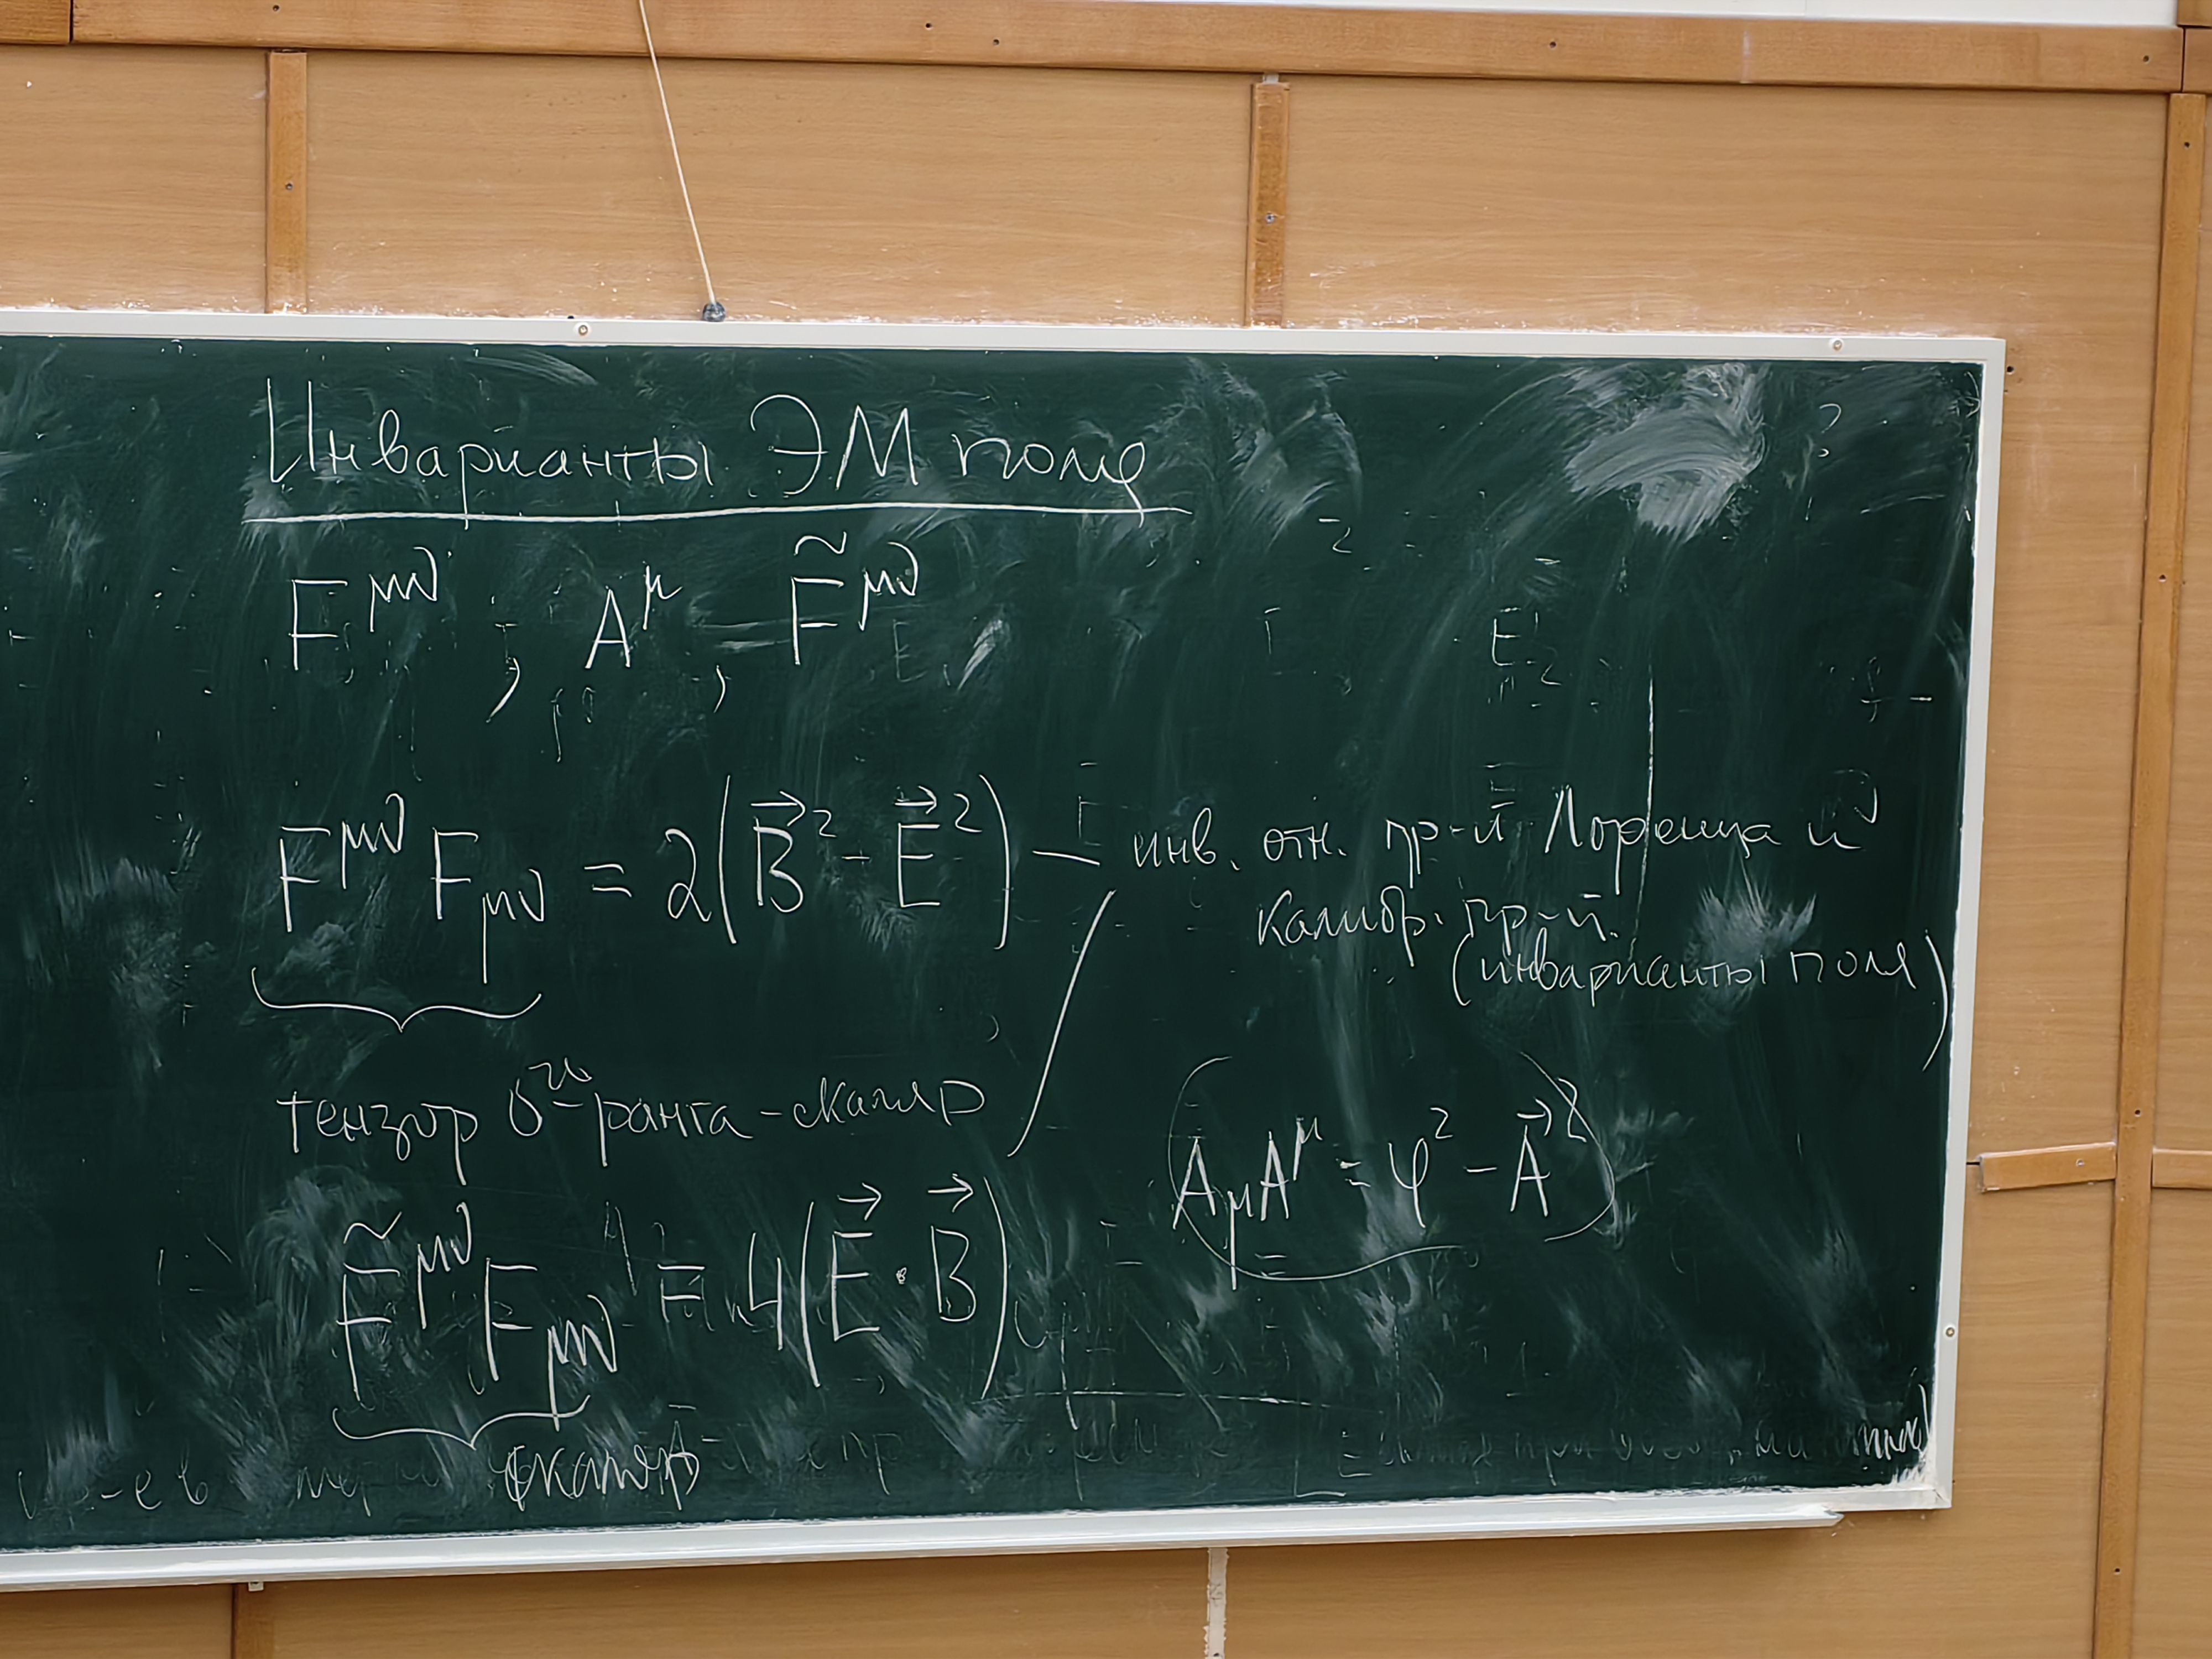 Инварианты ЭМ поля
F^{μν}, A^μ, F̃^{μν}
F^{μν} F_{μν} = 2(B⃗² - E⃗²) — инв. отн. пр-й Лоренца и
калибр. пр-й.
(инварианты поля)
тензор 0го ранга - скаляр
A_μ A^μ = φ² - A⃗²
F̃^{μν} F_{μν} = 4(E⃗ · B⃗)
скаляр